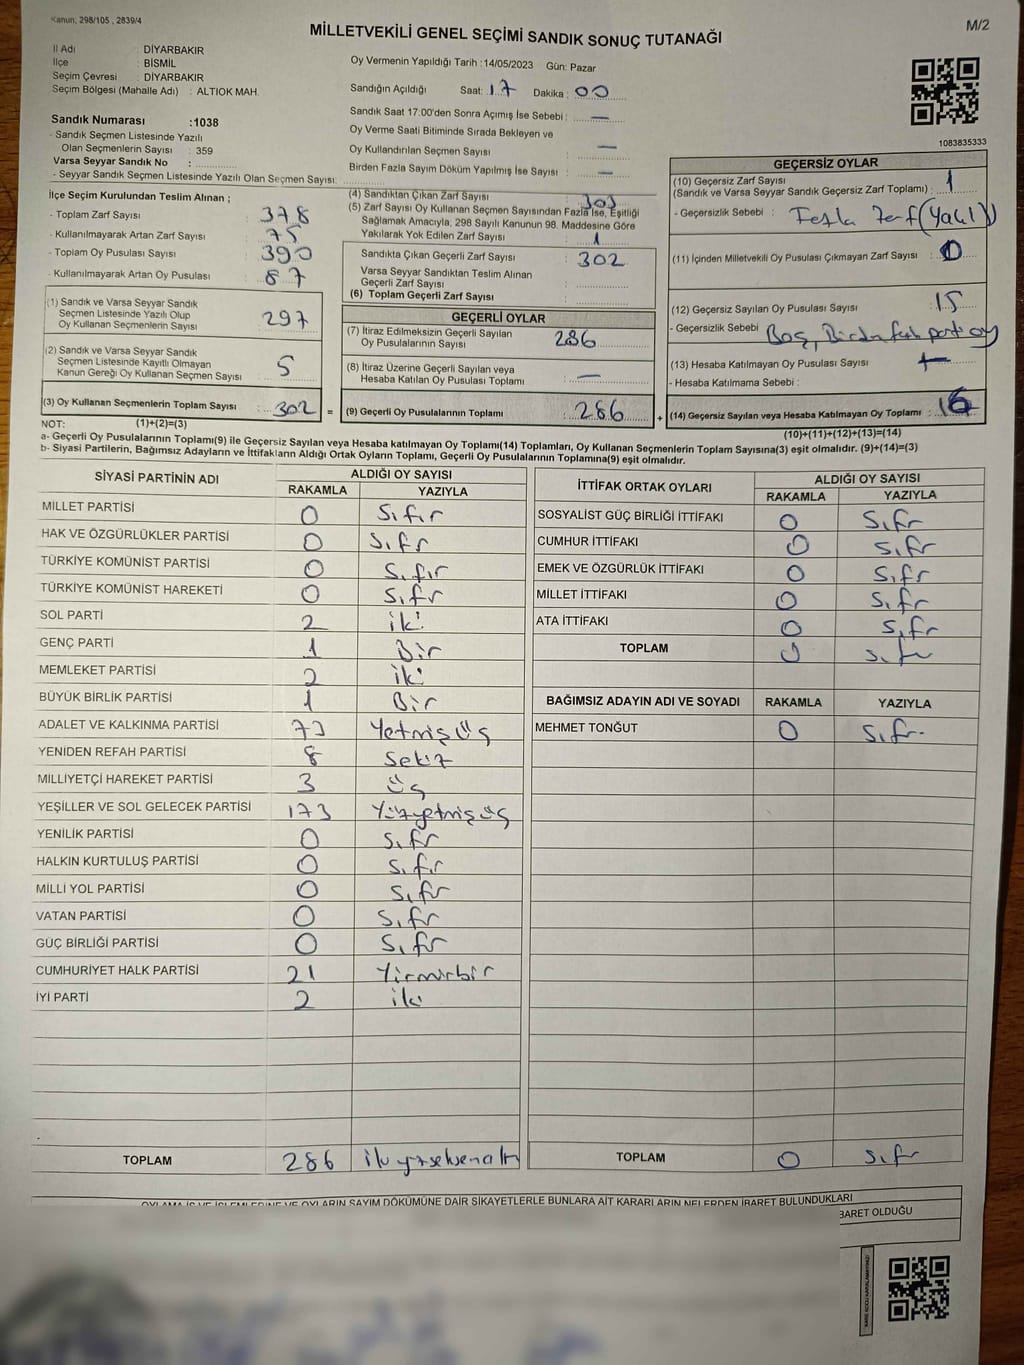 Kanun; 298/105 , 2839/4
MİLLETVEKİLİ GENEL SEÇİMİ SANDIK SONUÇ TUTANAĞI
M/2
İl Adı : DİYARBAKIR
İlçe : BİSMİL
Seçim Çevresi : DİYARBAKIR
Seçim Bölgesi (Mahalle Adı) : ALTIOK MAH.
Sandık Numarası :1038
- Sandık Seçmen Listesinde Yazılı
Olan Seçmenlerin Sayısı : 359
Varsa Seyyar Sandık No :
- Seyyar Sandık Seçmen Listesinde Yazılı Olan Seçmen Sayısı:
Oy Vermenin Yapıldığı Tarih :14/05/2023 Gün: Pazar
Sandığın Açıldığı Saat: 17 Dakika : 00
Sandık Saat 17:00'den Sonra Açımış İse Sebebi : —
Oy Verme Saati Bitiminde Sırada Bekleyen ve
Oy Kullandırılan Seçmen Sayısı : —
Birden Fazla Sayım Döküm Yapılmış İse Sayısı : —
1083835333
İlçe Seçim Kurulundan Teslim Alınan ;
- Toplam Zarf Sayısı : 378
- Kullanılmayarak Artan Zarf Sayısı : 75
- Toplam Oy Pusulası Sayısı : 390
- Kullanılmayarak Artan Oy Pusulası : 87
(1) Sandık ve Varsa Seyyar Sandık
Seçmen Listesinde Yazılı Olup
Oy Kullanan Seçmenlerin Sayısı : 297
(2) Sandık ve Varsa Seyyar Sandık
Seçmen Listesinde Kayıtlı Olmayan
Kanun Gereği Oy Kullanan Seçmen Sayısı : 5
(3) Oy Kullanan Seçmenlerin Toplam Sayısı : 302 =
(4) Sandıktan Çıkan Zarf Sayısı : 303
(5) Zarf Sayısı Oy Kullanan Seçmen Sayısından Fazla İse, Eşitliği
Sağlamak Amacıyla, 298 Sayılı Kanunun 98. Maddesine Göre
Yakılarak Yok Edilen Zarf Sayısı : 1
Sandıkta Çıkan Geçerli Zarf Sayısı : 302
Varsa Seyyar Sandıktan Teslim Alınan
Geçerli Zarf Sayısı :
(6) Toplam Geçerli Zarf Sayısı :
GEÇERLİ OYLAR
(7) İtiraz Edilmeksizin Geçerli Sayılan
Oy Pusulalarının Sayısı : 286
(8) İtiraz Üzerine Geçerli Sayılan veya
Hesaba Katılan Oy Pusulası Toplamı : —
(9) Geçerli Oy Pusulalarının Toplamı : 286 +
GEÇERSİZ OYLAR
(10) Geçersiz Zarf Sayısı
(Sandık ve Varsa Seyyar Sandık Geçersiz Zarf Toplamı) : 1
- Geçersizlik Sebebi : Fazla Zarf (Yakıldı)
(11) İçinden Milletvekili Oy Pusulası Çıkmayan Zarf Sayısı : 0
(12) Geçersiz Sayılan Oy Pusulası Sayısı : 15
- Geçersizlik Sebebi : Boş, Birden fazla parti oy
(13) Hesaba Katılmayan Oy Pusulası Sayısı :
- Hesaba Katılmama Sebebi :
(14) Geçersiz Sayılan veya Hesaba Katılmayan Oy Toplamı : 16
NOT: (1)+(2)=(3)
(10)+(11)+(12)+(13)=(14)
a- Geçerli Oy Pusulalarının Toplamı(9) ile Geçersiz Sayılan veya Hesaba katılmayan Oy Toplamı(14) Toplamları, Oy Kullanan Seçmenlerin Toplam Sayısına(3) eşit olmalıdır. (9)+(14)=(3)
b- Siyasi Partilerin, Bağımsız Adayların ve İttifakların Aldığı Ortak Oyların Toplamı, Geçerli Oy Pusulalarının Toplamına(9) eşit olmalıdır.
SİYASİ PARTİNİN ADI ALDIĞI OY SAYISI
RAKAMLA YAZIYLA
MİLLET PARTİSİ 0 Sıfır
HAK VE ÖZGÜRLÜKLER PARTİSİ 0 Sıfr
TÜRKİYE KOMÜNİST PARTİSİ 0 Sıfır
TÜRKİYE KOMÜNİST HAREKETİ 0 Sıfr
SOL PARTİ 2 iki
GENÇ PARTİ 1 Bir
MEMLEKET PARTİSİ 2 iki
BÜYÜK BİRLİK PARTİSİ 1 Bir
ADALET VE KALKINMA PARTİSİ 73 Yetmişüç
YENİDEN REFAH PARTİSİ 8 Sekiz
MİLLİYETÇİ HAREKET PARTİSİ 3 üç
YEŞİLLER VE SOL GELECEK PARTİSİ 173 Yüzyetmişüç
YENİLİK PARTİSİ 0 Sıfr
HALKIN KURTULUŞ PARTİSİ 0 Sıfır
MİLLİ YOL PARTİSİ 0 Sıfr
VATAN PARTİSİ 0 Sıfr
GÜÇ BİRLİĞİ PARTİSİ 0 Sıfr
CUMHURİYET HALK PARTİSİ 21 Yirmirbir
İYİ PARTİ 2 iki
TOPLAM 286 ikiyüzseksenaltı
İTTİFAK ORTAK OYLARI ALDIĞI OY SAYISI
RAKAMLA YAZIYLA
SOSYALİST GÜÇ BİRLİĞİ İTTİFAKI 0 Sıfr
CUMHUR İTTİFAKI 0 Sıfr
EMEK VE ÖZGÜRLÜK İTTİFAKI 0 Sıfr
MİLLET İTTİFAKI 0 Sıfr
ATA İTTİFAKI 0 Sıfr
TOPLAM 0 Sıfr
BAĞIMSIZ ADAYIN ADI VE SOYADI RAKAMLA YAZIYLA
MEHMET TONĞUT 0 Sıfr
TOPLAM 0 Sıfr
OYLAMA İŞ VE İŞLEMLERİNE VE OYLARIN SAYIM DÖKÜMÜNE DAİR ŞİKAYETLERLE BUNLARA AİT KARARLARIN NELERDEN İBARET BULUNDUKLARI
BARET OLDUĞU